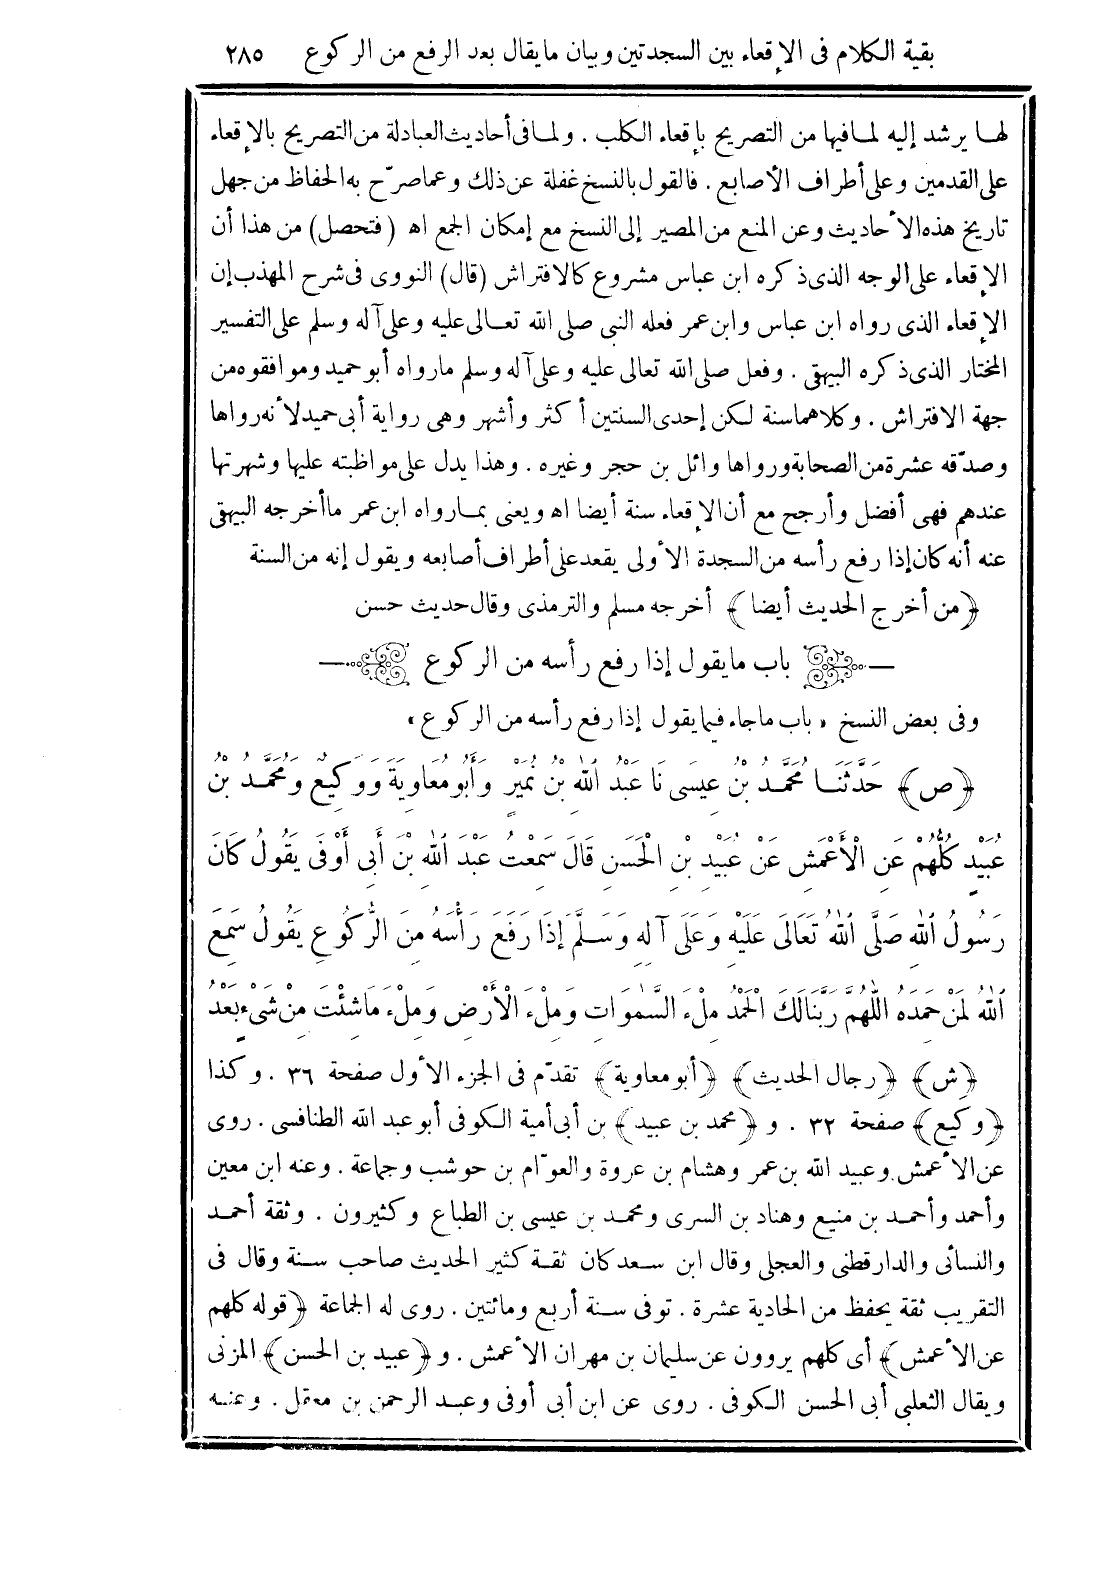 بقية الكلام فى الإقعاء بين السجدتين وبيان ما يقال بعد الرفع من الركوع ٢٨٥
لها يرشد إليه لما فيها من التصريح بإقعاء الكلب . ولما فى أحاديث العبادلة من التصريح بالإقعاء
على القدمين وعلى أطراف الأصابع . فالقول بالنسخ غفلة عن ذلك وعما صرّح به الحفاظ من جهل
تاريخ هذه الأحاديث وعن المنع من المصير إلى النسخ مع إمكان الجمع اه (فتحصل) من هذا أن
الإقعاء على الوجه الذى ذكره ابن عباس مشروع كالافتراش (قال) النووى فى شرح المهذب إن
الإقعاء الذى رواه ابن عباس وابن عمر فعله النبى صلى الله تعالى عليه وعلى آله وسلم على التفسير
المختار الذى ذكره البيهقى . وفعل صلى الله تعالى عليه وعلى آله وسلم ما رواه أبو حميد وموافقوه من
جهة الافتراش . وكلاهما سنة لكن إحدى السنتين أكثر وأشهر وهى رواية أبى حميد لأنه رواها
وصدّقه عشرة من الصحابة ورواها وائل بن حجر وغيره . وهذا يدل على مواظبته عليها وشهرتها
عندهم فهى أفضل وأرجح مع أن الإقعاء سنة أيضا اه ويعنى بما رواه ابن عمر ما أخرجه البيهقى
عنه أنه كان إذا رفع رأسه من السجدة الأولى يقعد على أطراف أصابعه ويقول إنه من السنة
﴿من أخرج الحديث أيضا﴾ أخرجه مسلم والترمذى وقال حديث حسن
باب ما يقول إذا رفع رأسه من الركوع
وفى بعض النسخ « باب ما جاء فيما يقول إذا رفع رأسه من الركوع »
﴿ص﴾ حَدَّثَنَا مُحَمَّدُ بْنُ عِيسَى نَا عَبْدُ اللهِ بْنُ نُمَيْرٍ وَأَبُو مُعَاوِيَةَ وَوَكِيعٌ وَمُحَمَّدُ بْنُ
عُبَيْدٍ كُلُّهُمْ عَنِ الْأَعْمَشِ عَنْ عُبَيْدِ بْنِ الْحَسَنِ قَالَ سَمِعْتُ عَبْدَ اللهِ بْنَ أَبِى أَوْفَى يَقُولُ كَانَ
رَسُولُ اللهِ صَلَّى اللهُ تَعَالَى عَلَيْهِ وَعَلَى آلِهِ وَسَلَّمَ إِذَا رَفَعَ رَأْسَهُ مِنَ الرُّكُوعِ يَقُولُ سَمِعَ
اللهُ لِمَنْ حَمِدَهُ اللَّهُمَّ رَبَّنَا لَكَ الْحَمْدُ مِلْءَ السَّمٰوَاتِ وَمِلْءَ الْأَرْضِ وَمِلْءَ مَا شِئْتَ مِنْ شَىْءٍ بَعْدُ
﴿ش﴾ ﴿رجال الحديث﴾ ﴿أبو معاوية﴾ تقدّم فى الجزء الأول صفحة ٣٦ . وكذا
﴿وكيع﴾ صفحة ٣٢ . و ﴿محمد بن عبيد﴾ بن أبى أمية الكوفى أبو عبد الله الطنافسى . روى
عن الأعمش وعبيد الله بن عمر وهشام بن عروة والعوّام بن حوشب وجماعة . وعنه ابن معين
وأحمد وأحمد بن منيع وهناد بن السرى ومحمد بن عيسى بن الطباع وكثيرون . وثقة أحمد
والنسائى والدارقطنى والعجلى وقال ابن سعد كان ثقة كثير الحديث صاحب سنة وقال فى
التقريب ثقة يحفظ من الحادية عشرة . توفى سنة أربع ومائتين . روى له الجماعة ﴿قوله كلهم
عن الأعمش﴾ أى كلهم يروون عن سليمان بن مهران الأعمش . و ﴿عبيد بن الحسن﴾ المزنى
ويقال الثعلبى أبى الحسن الكوفى . روى عن ابن أبى أوفى وعبد الرحمن بن معقل . وعنه